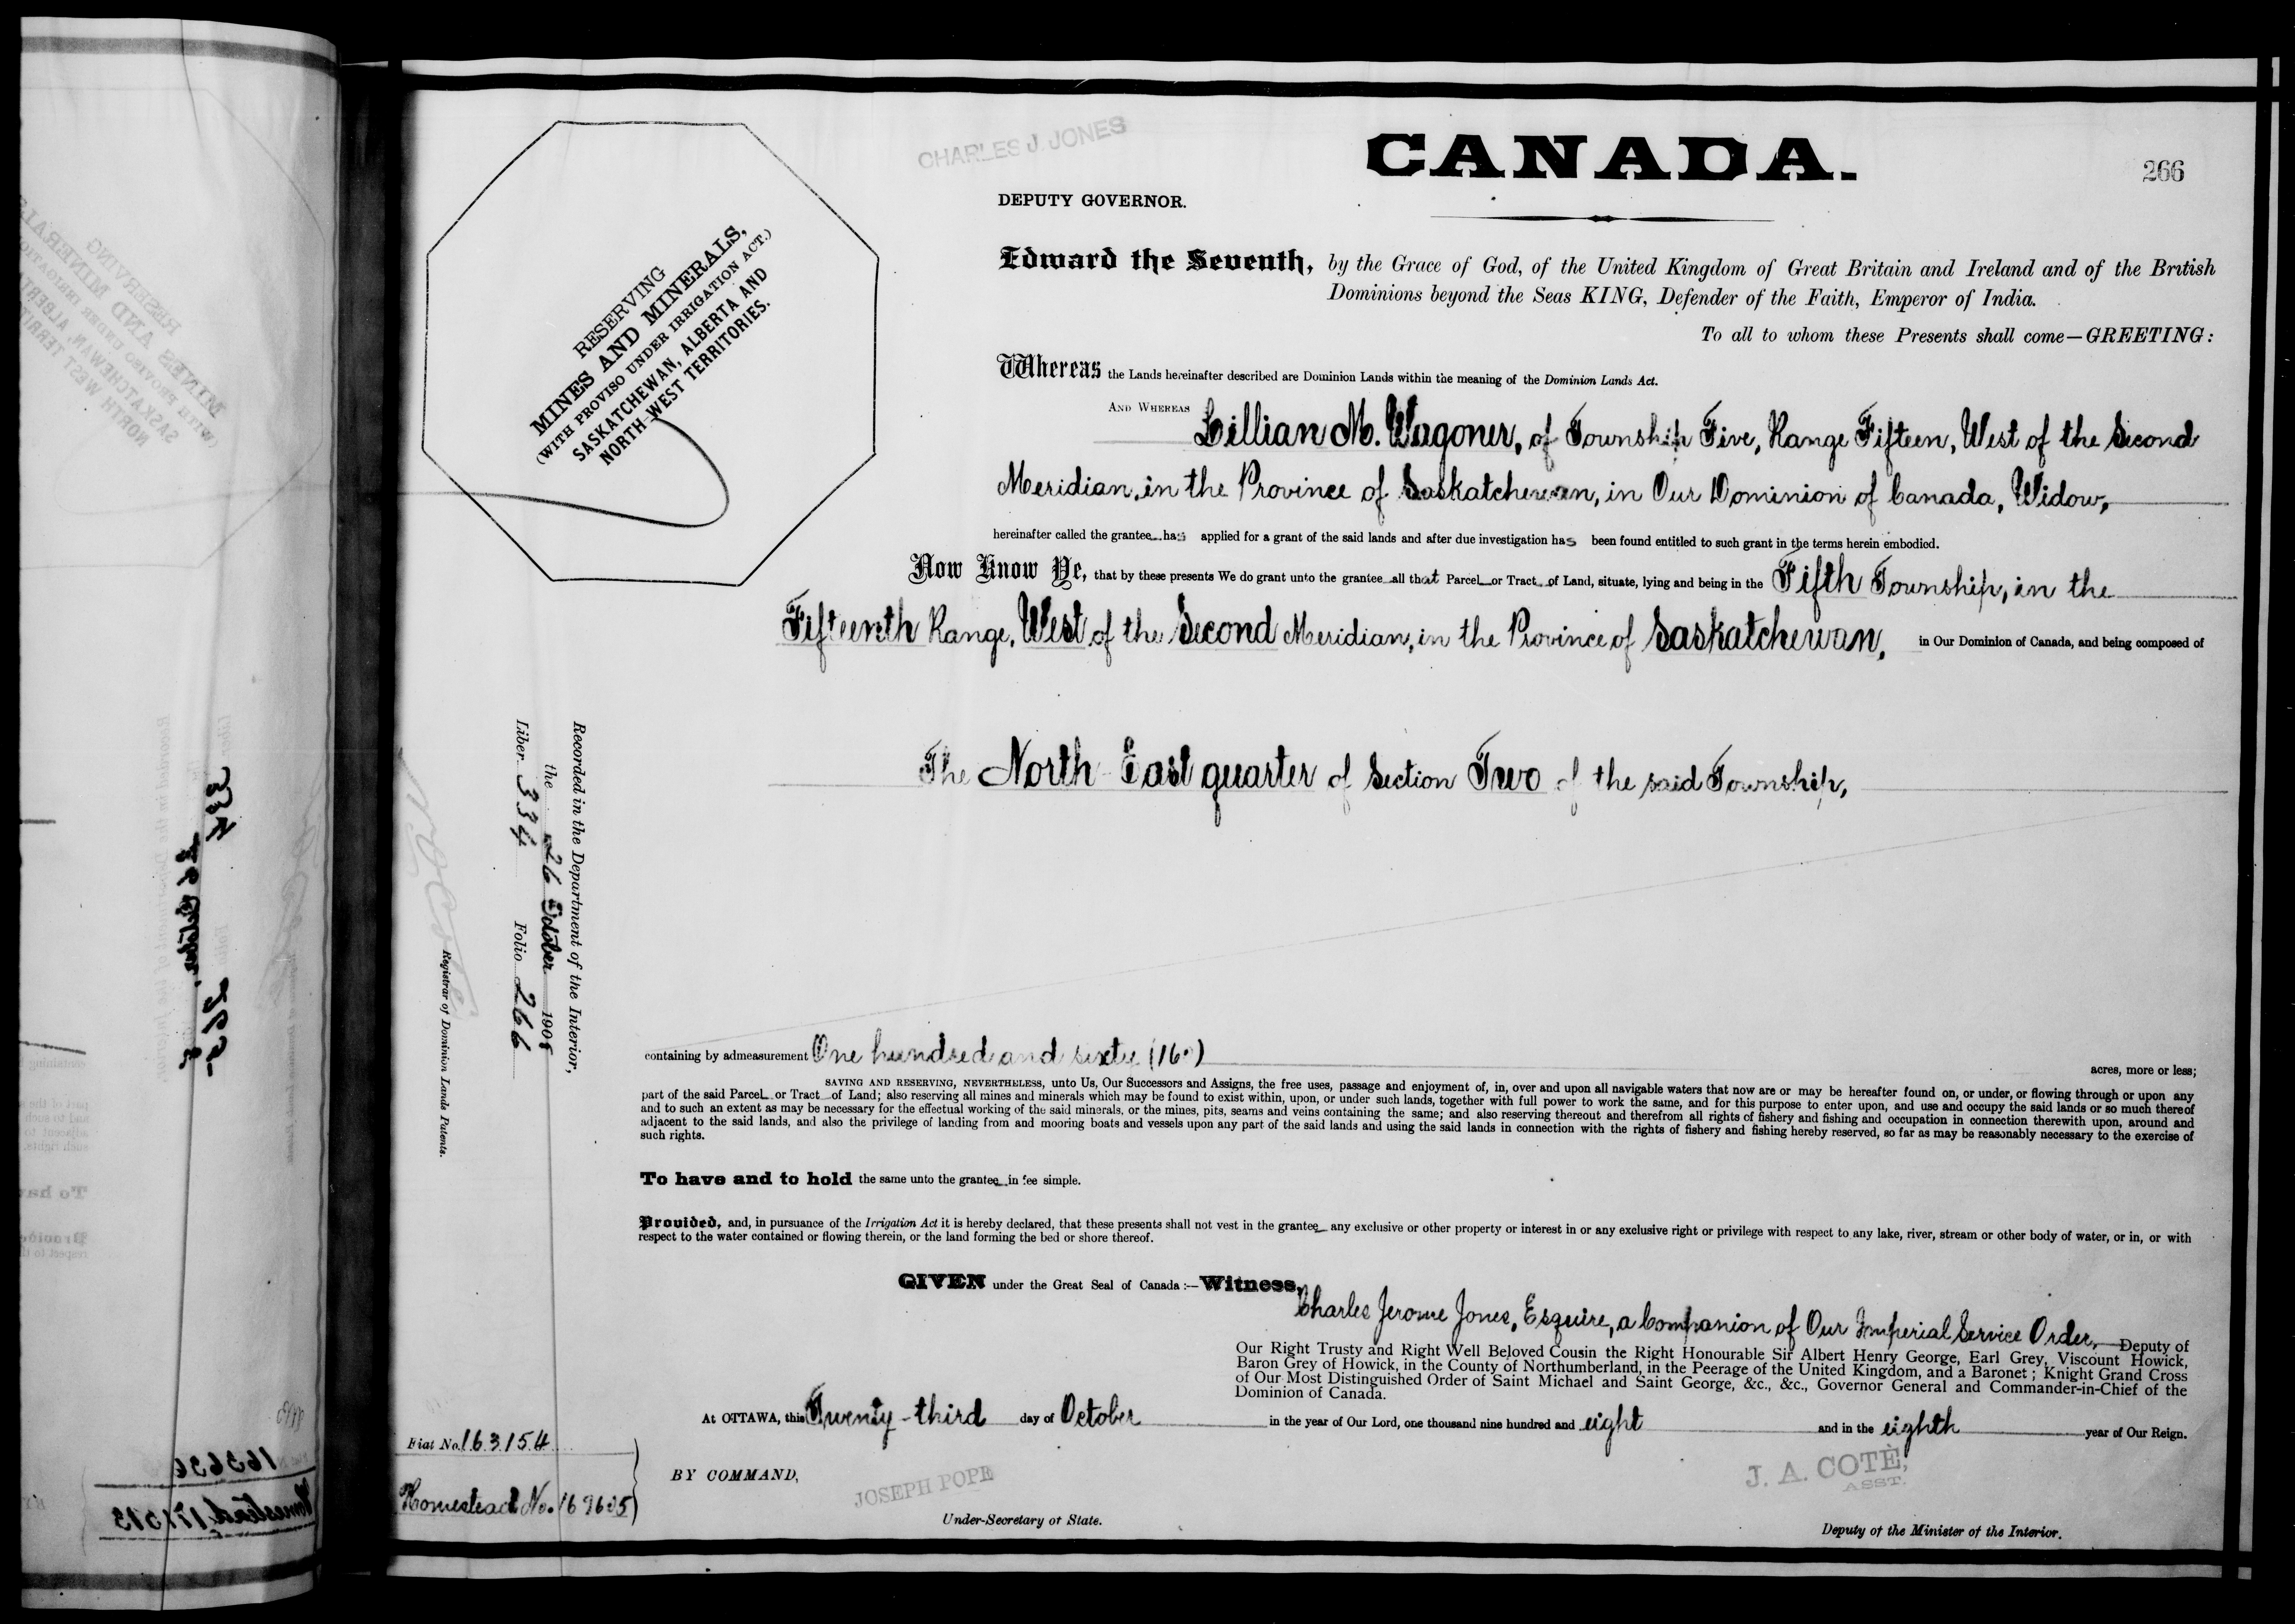 CHARLES J. JONES
CANADA.
266
DEPUTY GOVERNOR.
RESERVING
MINES AND MINERALS,
(WITH PROVISO UNDER IRRIGATION ACT.)
SASKATCHEWAN, ALBERTA AND
NORTH-WEST TERRITORIES.
Edward the Seventh, by the Grace of God, of the United Kingdom of Great Britain and Ireland and of the British
Dominions beyond the Seas KING, Defender of the Faith, Emperor of India.
To all to whom these Presents shall come—GREETING:
Whereas the Lands hereinafter described are Dominion Lands within the meaning of the Dominion Lands Act.
AND WHEREAS Lillian M. Wagoner, of Township Five, Range Fifteen, West of the Second
Meridian, in the Province of Saskatchewan, in Our Dominion of Canada, Widow,
hereinafter called the grantee has applied for a grant of the said lands and after due investigation has been found entitled to such grant in the terms herein embodied.
Now Know Ye, that by these presents We do grant unto the grantee all that Parcel or Tract of Land, situate, lying and being in the Fifth Township, in the
Fifteenth Range, West of the Second Meridian, in the Province of Saskatchewan, in Our Dominion of Canada, and being composed of
The North East quarter of Section Two of the said Township,
Recorded in the Department of the Interior,
the 26 October 1908
Liber 334 Folio 266
Registrar of Dominion Lands Patents.
containing by admeasurement One hundred and sixty (160) acres, more or less;
SAVING AND RESERVING, NEVERTHELESS, unto Us, Our Successors and Assigns, the free uses, passage and enjoyment of, in, over and upon all navigable waters that now are or may be hereafter found on, or under, or flowing through or upon any
part of the said Parcel or Tract of Land; also reserving all mines and minerals which may be found to exist within, upon, or under such lands, together with full power to work the same, and for this purpose to enter upon, and use and occupy the said lands or so much thereof
and to such an extent as may be necessary for the effectual working of the said minerals, or the mines, pits, seams and veins containing the same; and also reserving thereout and therefrom all rights of fishery and fishing and occupation in connection therewith upon, around and
adjacent to the said lands, and also the privilege of landing from and mooring boats and vessels upon any part of the said lands and using the said lands in connection with the rights of fishery and fishing hereby reserved, so far as may be reasonably necessary to the exercise of
such rights.
To have and to hold the same unto the grantee in fee simple.
Provided, and, in pursuance of the Irrigation Act it is hereby declared, that these presents shall not vest in the grantee any exclusive or other property or interest in or any exclusive right or privilege with respect to any lake, river, stream or other body of water, or in, or with
respect to the water contained or flowing therein, or the land forming the bed or shore thereof.
GIVEN under the Great Seal of Canada:—Witness,
Charles Jerome Jones, Esquire, a Companion of Our Imperial Service Order, Deputy of
Our Right Trusty and Right Well Beloved Cousin the Right Honourable Sir Albert Henry George, Earl Grey, Viscount Howick,
Baron Grey of Howick, in the County of Northumberland, in the Peerage of the United Kingdom, and a Baronet; Knight Grand Cross
of Our Most Distinguished Order of Saint Michael and Saint George, &c., &c., Governor General and Commander-in-Chief of the
Dominion of Canada.
At OTTAWA, this Twenty-third day of October in the year of Our Lord, one thousand nine hundred and eight and in the eighth year of Our Reign.
Fiat No. 163154
Homestead No. 169605
BY COMMAND,
JOSEPH POPE
Under-Secretary of State.
J. A. COTÈ,
ASST.
Deputy of the Minister of the Interior.